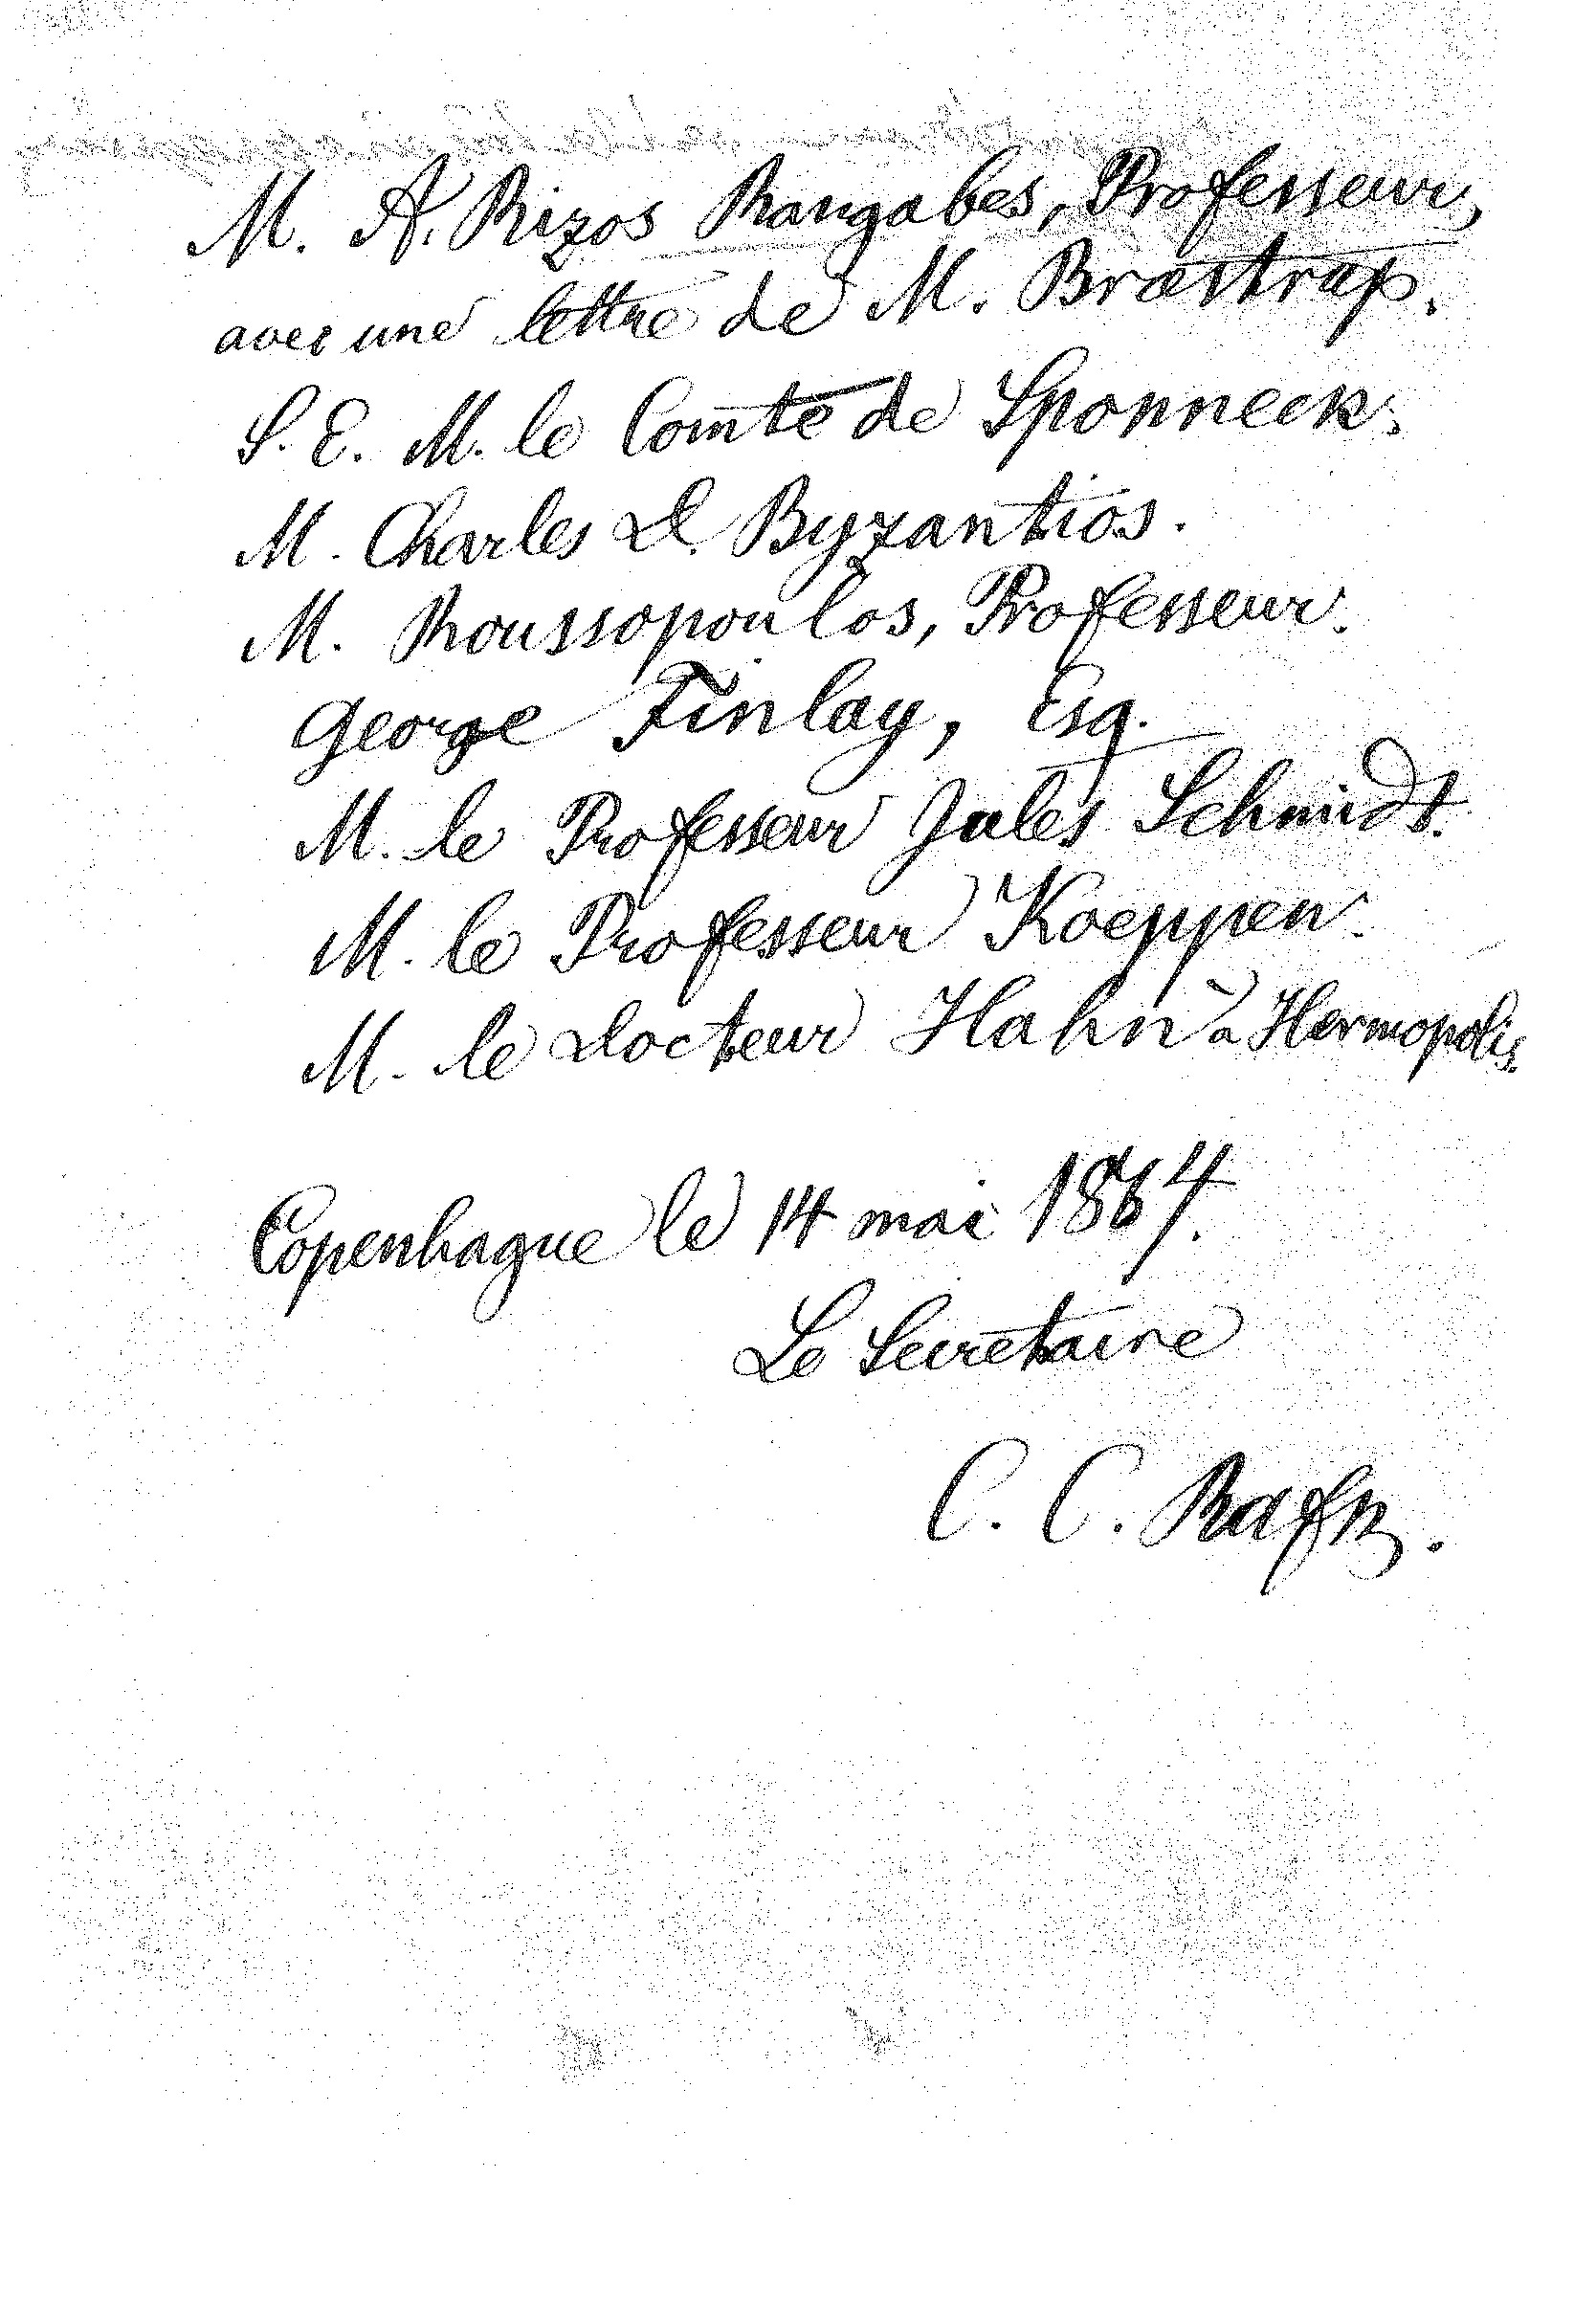 M. A. Rizos Rangabes, Professeur,
avec une lettre de M. Bræstrap.
S. E. M. le Comte de Sponneck.
M. Charles D. Byzantios.
M. Roussopoulos, Professeur.
George Finlay, Esq.
M. le Professeur Jules Schmidt.
M. le Professeur Koeppen.
M. le Docteur Hahn à Hermopolis.
Copenhague le 14 mai 1864.
Le Secretaire
C. C. Rafn.